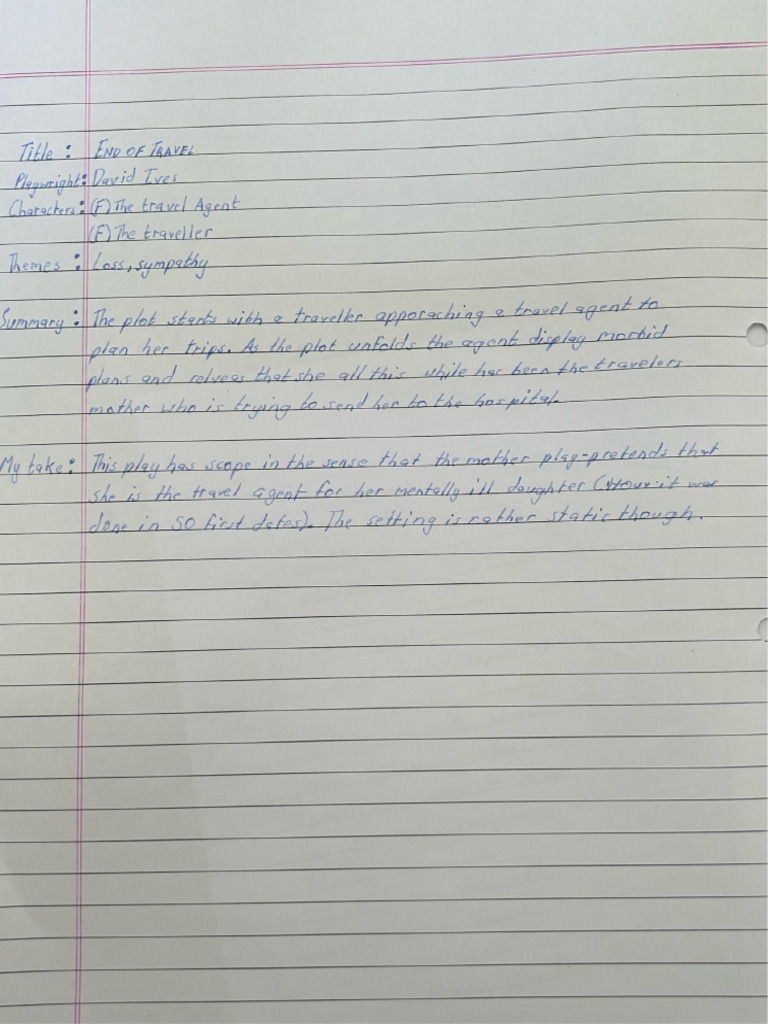 Title : END OF TRAVEL
Playwright: David Ives
Characters: (F) The travel Agent
(F) The traveller
Themes : Loss, sympathy
Summary : The plot starts with a traveller apporaching a travel agent to
plan her trips. As the plot unfolds the agent display morbid
plans and relveas that she all this while has been the travelers
mother who is trying to send her to the hospital.
My take : This play has scope in the sense that the mother play-pretends that
she is the travel agent for her mentally ill daughter ( it was
done in 50 first dates). The setting is rather static though.